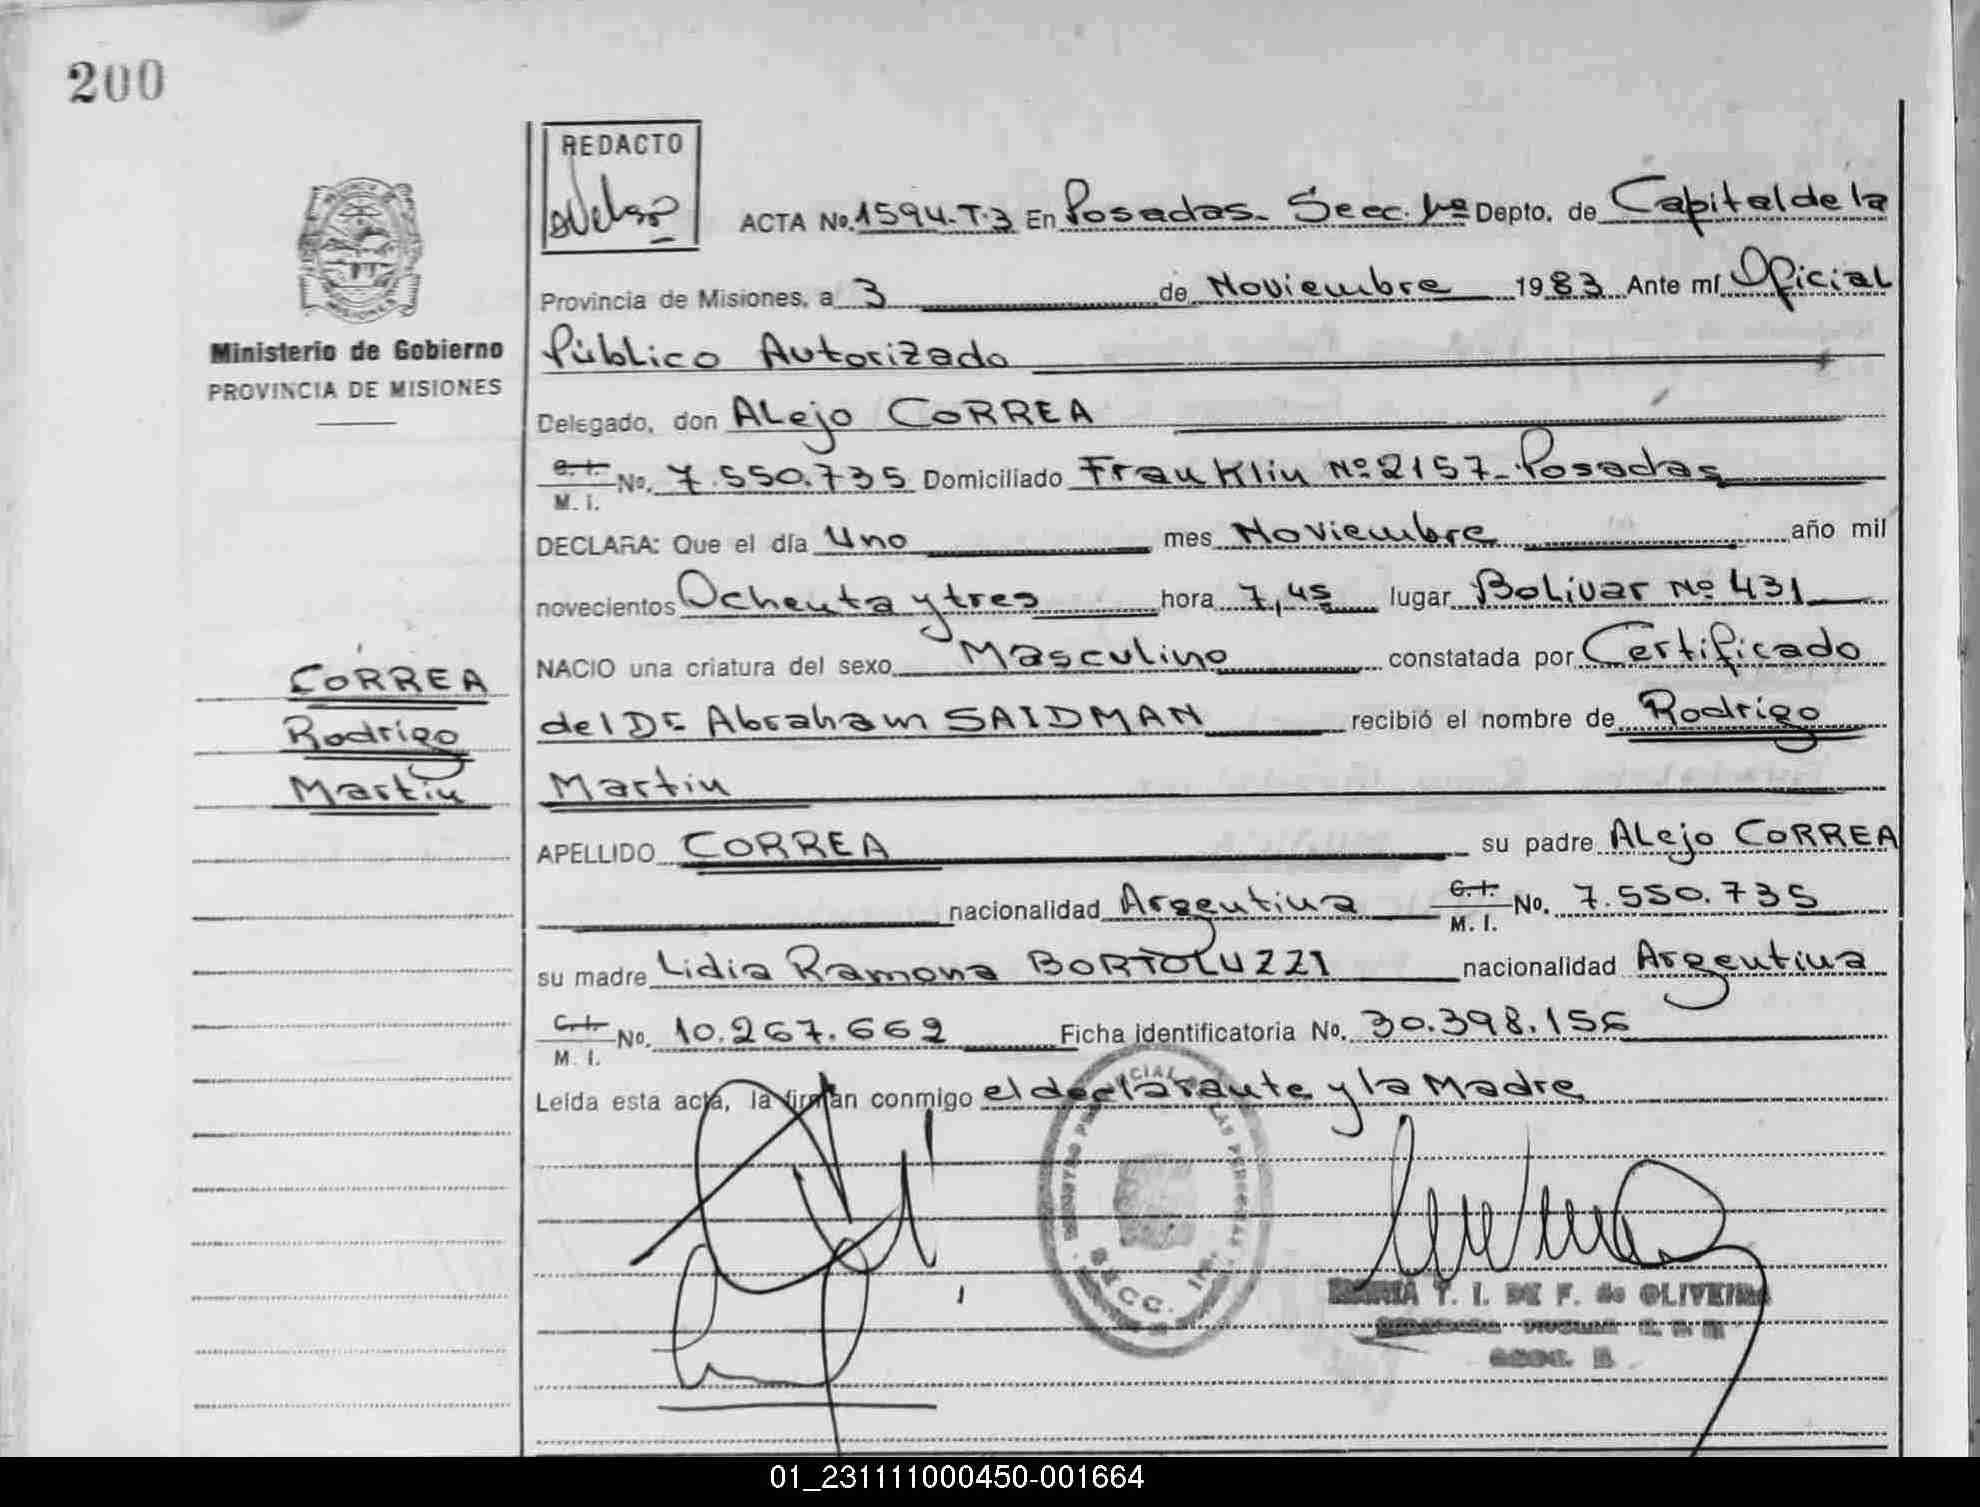 200
REDACTO
ACTA No. 1594-T.3 En Posadas- Secc. 1ª Depto. de Capital de la
Provincia de Misiones, a 3 de Noviembre 1983 Ante mí Oficial
Ministerio de Gobierno
PROVINCIA DE MISIONES
Público Autorizado
Delegado, don ALejo CORREA
C. I. / M. I. No. 7.550.735 Domiciliado Franklin Nº 2157- Posadas
DECLARA: Que el día Uno mes Noviembre año mil
novecientos Ochenta y tres hora 7,45 lugar Bolivar Nº 431
NACIO una criatura del sexo Masculino constatada por Certificado
CORREA
Rodrigo
Martin
del Dr Abraham SAIDMAN recibió el nombre de Rodrigo
Martin
APELLIDO CORREA su padre ALejo CORREA
nacionalidad Argentina C. I. / M. I. No. 7.550.735
su madre Lidia Ramona BORTOLUZZI nacionalidad Argentina
C. I. / M. I. No. 10.267.662 Ficha identificatoria No. 30.398.156
Leída esta acta, la firman conmigo el declarante y la Madre
SECC. 1ra.
MARIA T. I. DE F. de OLIVEIRA
01_231111000450-001664